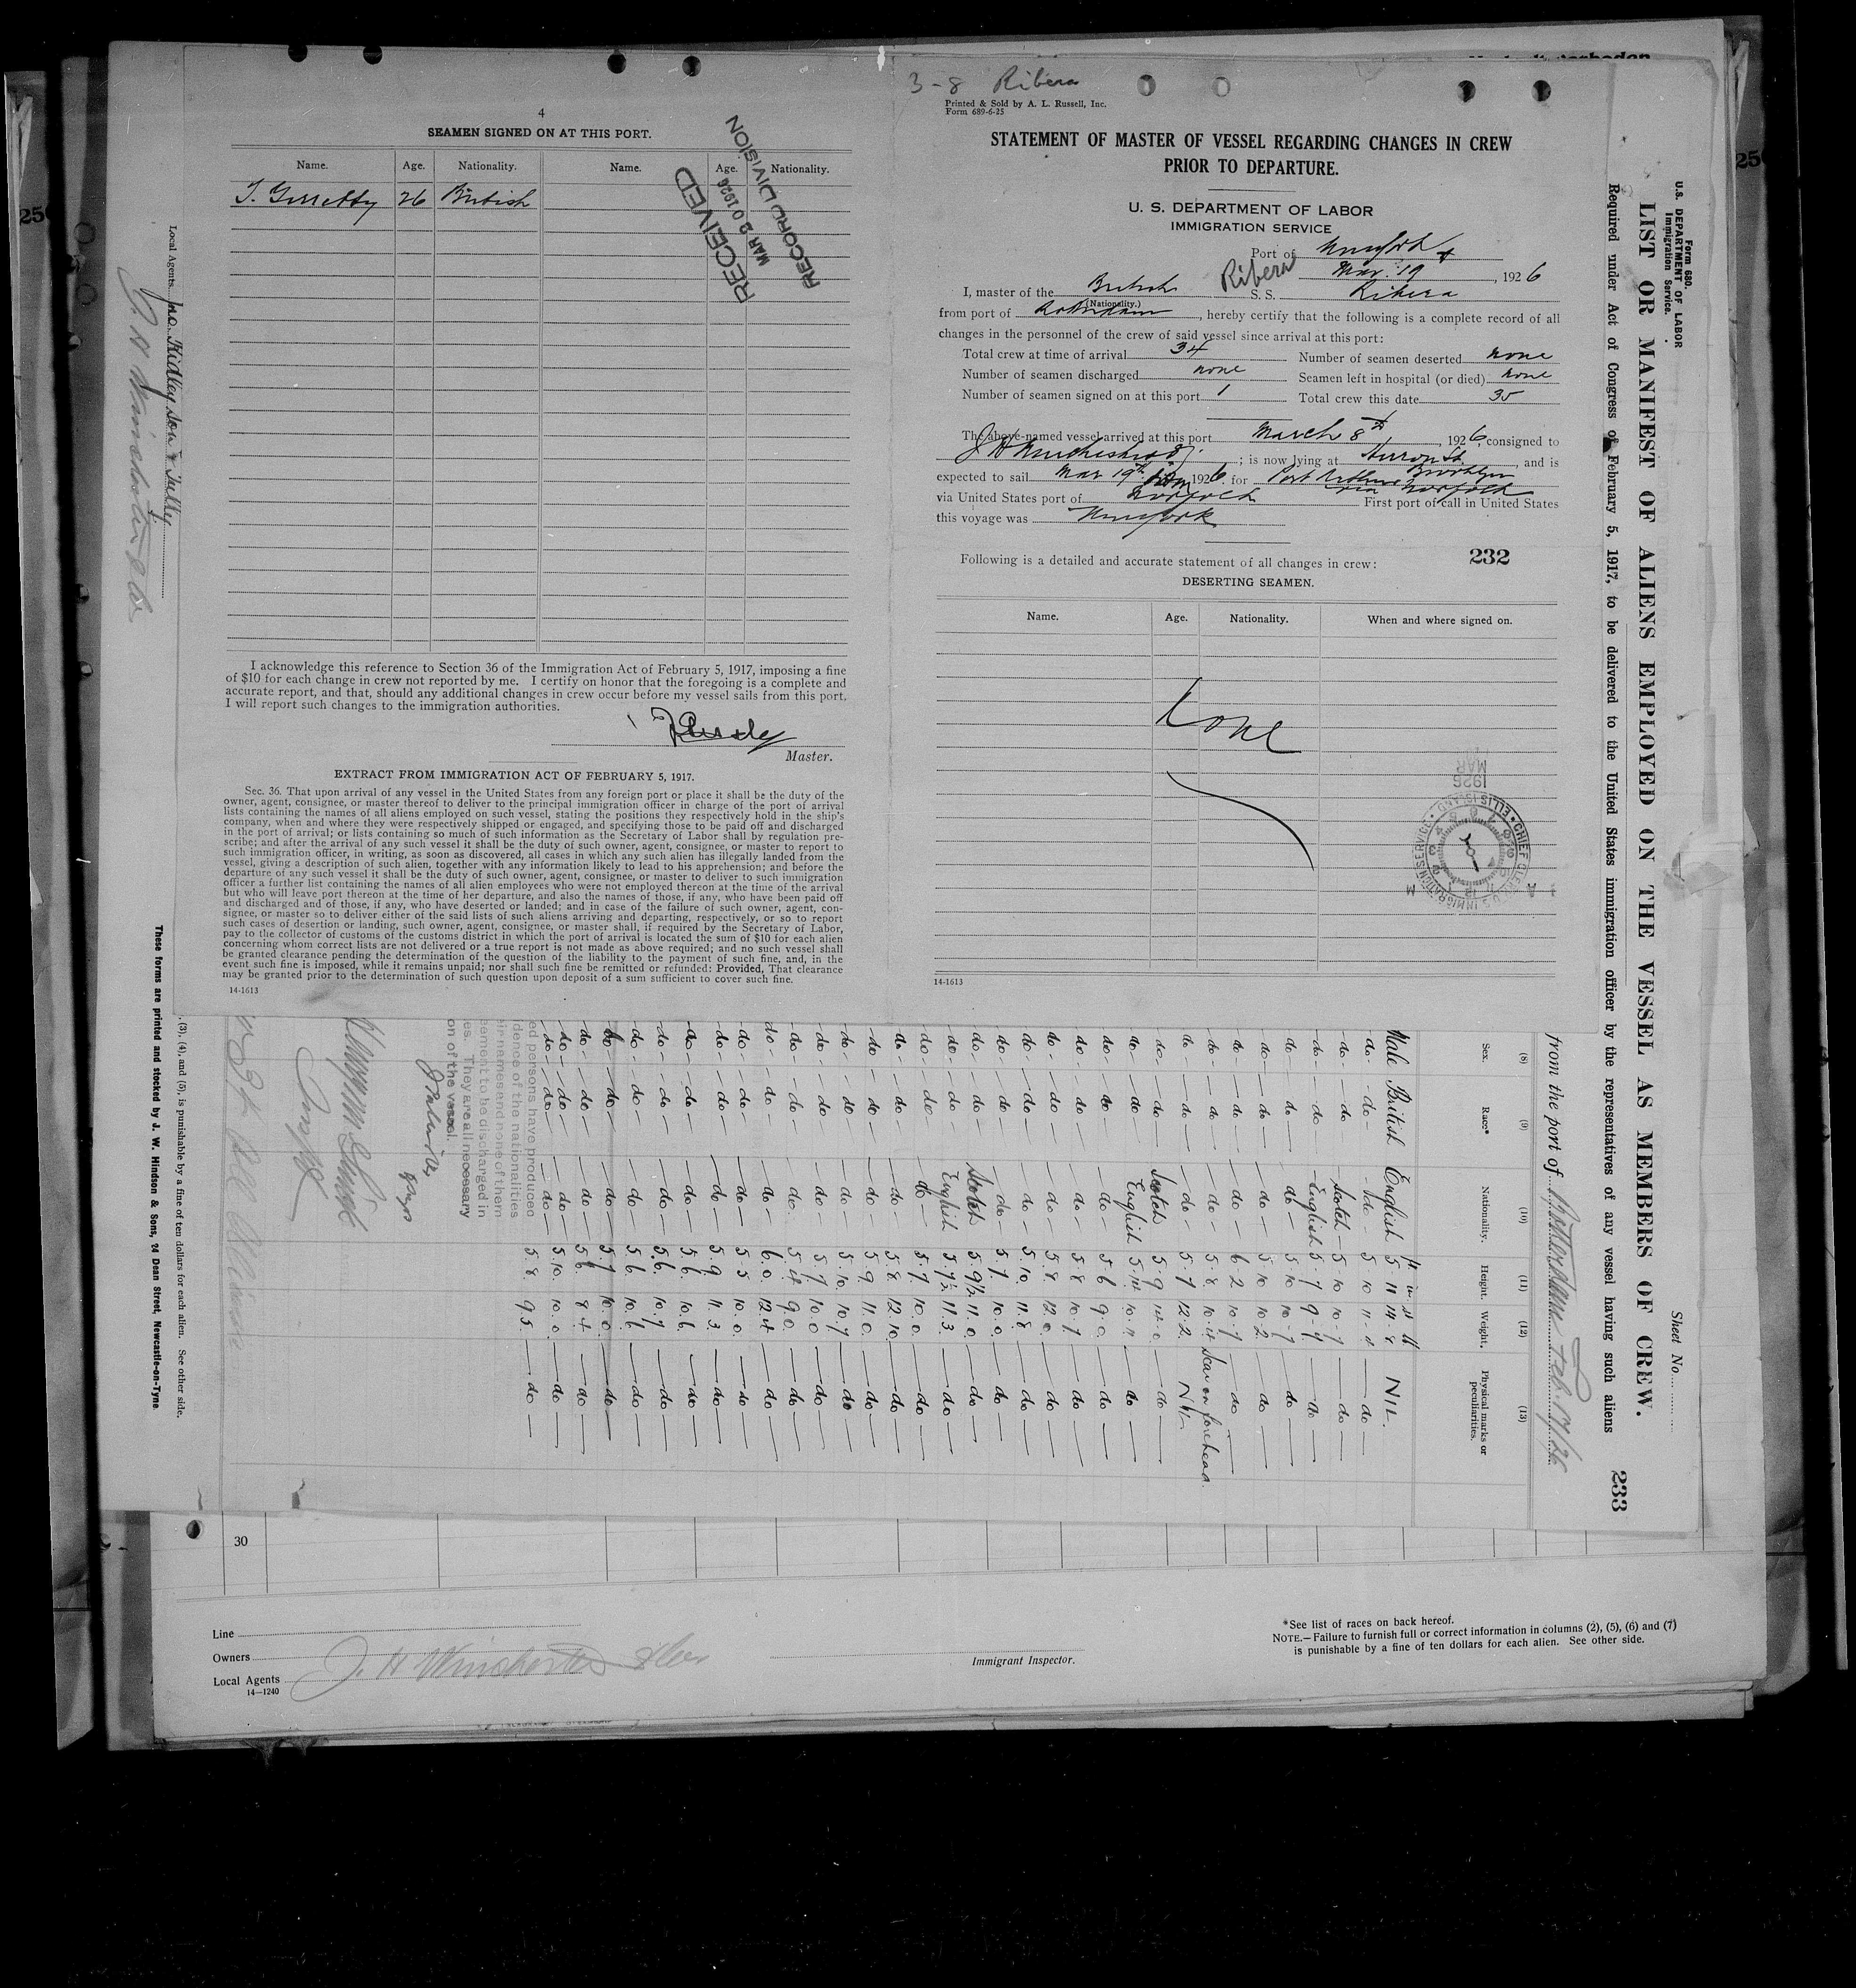 4
SEAMEN SIGNED ON AT THIS PORT.
Name. Age. Nationality. Name. Age. Nationality.
26 British
RECEIVED
MAR 20 1926
RECORD DIVISION
I acknowledge this reference to Section 36 of the Immigration Act of February 5, 1917, imposing a fine
of $10 for each change in crew not reported by me. I certify on honor that the foregoing is a complete and
accurate report, and that, should any additional changes in crew occur before my vessel sails from this port,
I will report such changes to the immigration authorities.
Master.
EXTRACT FROM IMMIGRATION ACT OF FEBRUARY 5, 1917.
Sec. 36. That upon arrival of any vessel in the United States from any foreign port or place it shall be the duty of the
owner, agent, consignee, or master thereof to deliver to the principal immigration officer in charge of the port of arrival
lists containing the names of all aliens employed on such vessel, stating the positions they respectively hold in the ship's
company, when and where they were respectively shipped or engaged, and specifying those to be paid off and discharged
in the port of arrival; or lists containing so much of such information as the Secretary of Labor shall by regulation pre-
scribe; and after the arrival of any such vessel it shall be the duty of such owner, agent, consignee, or master to report to
such immigration officer, in writing, as soon as discovered, all cases in which any such alien has illegally landed from the
vessel, giving a description of such alien, together with any information likely to lead to his apprehension; and before the
departure of any such vessel it shall be the duty of such owner, agent, consignee, or master to deliver to such immigration
officer a further list containing the names of all alien employees who were not employed thereon at the time of the arrival
but who will leave port thereon at the time of her departure, and also the names of those, if any, who have been paid off
and discharged and of those, if any, who have deserted or landed; and in case of the failure of such owner, agent, con-
signee, or master so to deliver either of the said lists of such aliens arriving and departing, respectively, or so to report
such cases of desertion or landing, such owner, agent, consignee, or master shall, if required by the Secretary of Labor,
pay to the collector of customs of the customs district in which the port of arrival is located the sum of $10 for each alien
concerning whom correct lists are not delivered or a true report is not made as above required; and no such vessel shall
be granted clearance pending the determination of the question of the liability to the payment of such fine, and, in the
event such fine is imposed, while it remains unpaid; nor shall such fine be remitted or refunded: Provided, That clearance
may be granted prior to the determination of such question upon deposit of a sum sufficient to cover such fine.
14-1613
3-8 Ribera
Printed & Sold by A. L. Russell, Inc.
Form 689-6-25
STATEMENT OF MASTER OF VESSEL REGARDING CHANGES IN CREW
PRIOR TO DEPARTURE.
U. S. DEPARTMENT OF LABOR
IMMIGRATION SERVICE
Port of New York
Ribera Mar. 19, 1926
I, master of the British S. S. Ribera
(Nationality.)
from port of Rotterdam, hereby certify that the following is a complete record of all
changes in the personnel of the crew of said vessel since arrival at this port:
Total crew at time of arrival 34 Number of seamen deserted none
Number of seamen discharged none Seamen left in hospital (or died) none
Number of seamen signed on at this port 1 Total crew this date 35
The above-named vessel arrived at this port March 8th, 1926, consigned to
; is now lying at Brooklyn, and is
expected to sail Mar 19th 1926 for Port Arthur via Norfolk
via United States port of Norfolk First port of call in United States
this voyage was New York
232
Following is a detailed and accurate statement of all changes in crew:
DESERTING SEAMEN.
Name. Age. Nationality. When and where signed on.
None
1926
MAR
CHIEF CLERK U.S. IMMIGRATION SERVICE ELLIS ISLAND
14-1613
Form 680.
U.S. DEPARTMENT OF LABOR
Immigration Service.
Sheet No.
LIST OR MANIFEST OF ALIENS EMPLOYED ON THE VESSEL AS MEMBERS OF CREW.
Required under Act of Congress of February 5, 1917, to be delivered to the United States immigration officer by the representatives of any vessel having such aliens
233
from the port of Rotterdam Feb. 17/26
(8) (9) (10) (11) (12) (13)
Sex Race* Nationality. Height. Weight. Physical marks or peculiarities.
Male British English 5 11 14-8 NIL.
do do do 5 10 do
do do Scotch 5 10 10-7 do
do do English 5 7 9-7 do
do do do 5 10 10-7 do
do do do 5 10 10-2 do
do do do 6 2 10-7 do
do do do 5. 8 Scar on forehead.
do do do 5. 7 12 2 Nil
do do Scotch 5. 9 12 0 do
do do English do
do do do 5 6 9. 0 do
do do do 5 8 10. 7 do
do do do 5. 8 12. 0 do
do do do 5. 10. 11. 8 do
do do do 5. 7. 10. 0. do
do do Scotch 5. 9½ 11. 0 do
do do English 5. 7½ 11. 3. do
do do do 5. 7 10. 0 do
do do do 5. 8 12. 10. do
do do do 5. 9 11. 0 do
do do do 5. 10. 10. 7 do
do do do 5. 7 10. 0 do
do do do 5. 4 9. 0. do
do do do 6. 0. 12. 4 do
do do do 5 5 10. 0. do
do do do 5. 9 11. 3. do
do do do 5. 6. 10. 6. do
do do do 5. 6. 10. 7 do
do do do 5. 6. 10. 6 do
do do do 5. 7 10. 0. do
do do do 5. 6 8. 4 do
do do do 5. 10. 10. 0 do
do do do 5. 8. 9. 5. do
ed persons have produced
idence of the nationalities
eir names and none of them
ement to be discharged in
es. They are all necessary
on of the vessel.
Local Agents Jno. Ridley Son & Tully
J H Winchester & Co
, (3), (4), and (5), is punishable by a fine of ten dollars for each alien. See other side.
These forms are printed and stocked by J. W. Hindson & Sons, 24 Dean Street, Newcastle-on-Tyne
30
Line
Owners
Local Agents J. H Winchester & Co
14—1240
Immigrant Inspector.
*See list of races on back hereof.
NOTE.—Failure to furnish full or correct information in columns (2), (5), (6) and (7)
is punishable by a fine of ten dollars for each alien. See other side.